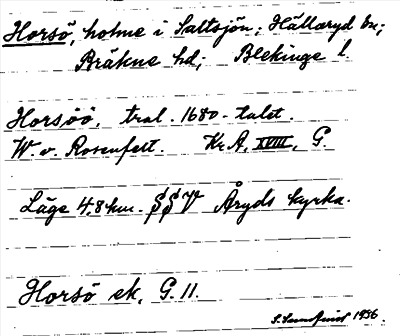 Horsö, holme i Saltsjön; Hällaryd sn;
Bräkne hd; Blekinge l.
Horsöö, trol. 1680-talet.
W. v. Rosenfelt. Kr. A, XVIII, G.
Läge 4,8 km. SSV Åryds kyrka.
Horsö ek. G. 11.
S. 1936.